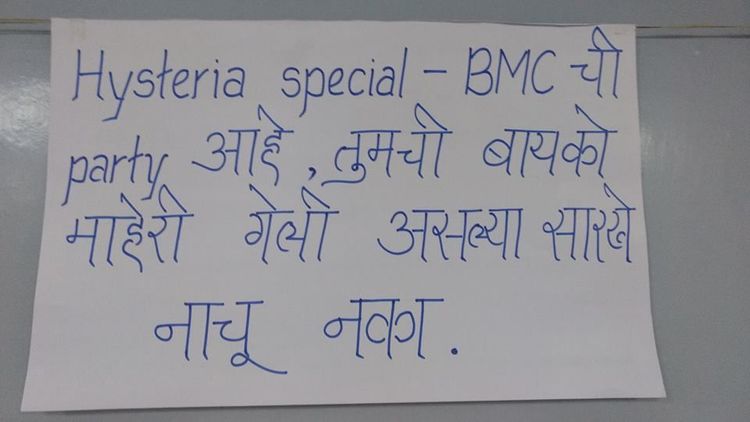 Hysteria special - BMC ची
party आहे, तुमची बायको
माहेरी गेली असल्या सारखे
नाचू नका.